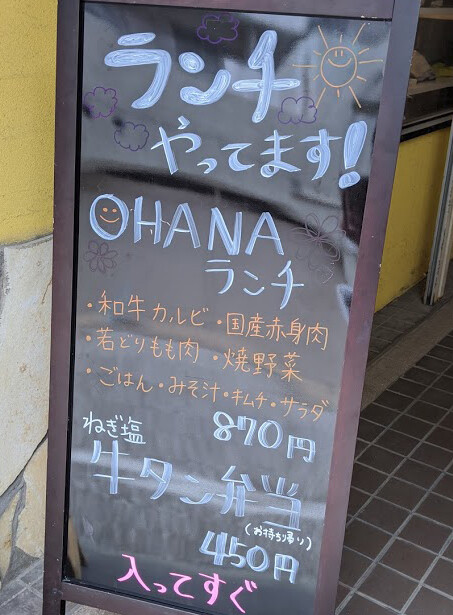 ランチ
やってます!
OHANA
ランチ
・和牛カルビ・国産赤身肉
・若どりもも肉・焼野菜
・ごはん・みそ汁・キムチ・サラダ
870円
ねぎ塩
牛タン弁当
(お持ち帰り)
450円
入ってすぐ